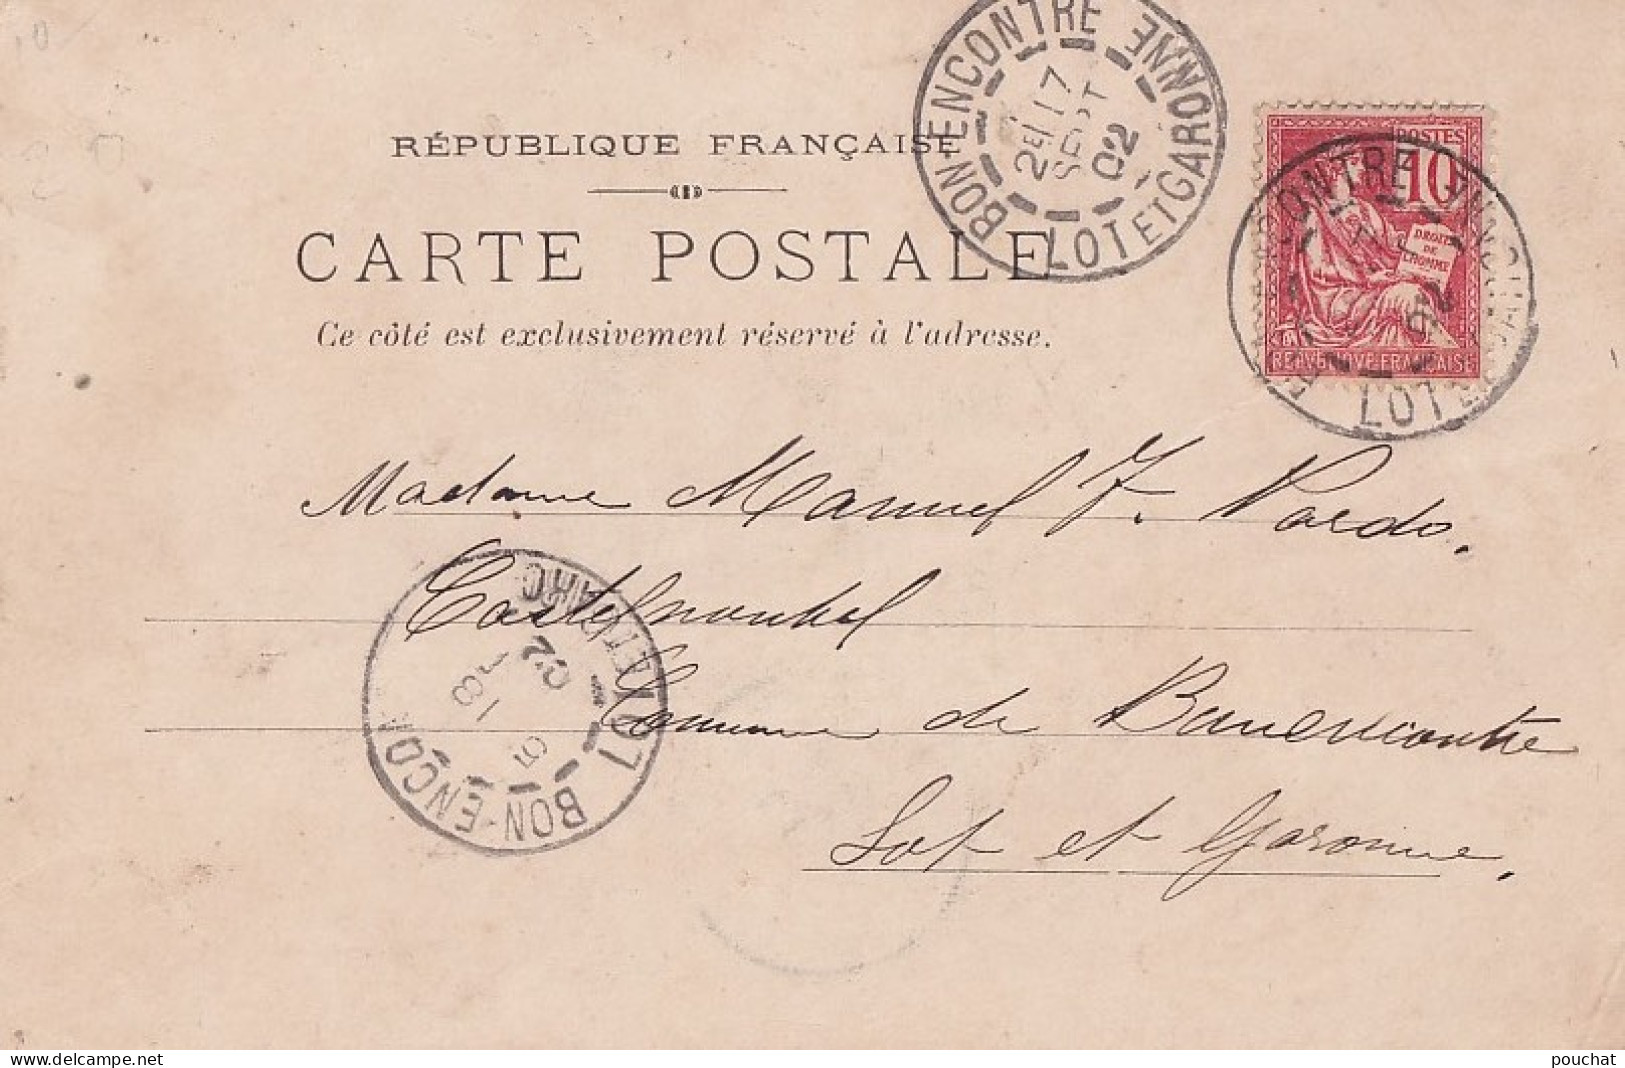 RÉPUBLIQUE FRANÇAISE
CARTE POSTALE
Ce côté est exclusivement réservé à l'adresse.
BON-ENCONTRE LOT ET GARONNE
2E 17
SEPT
02
POSTES
10
DROITS
DE
L'HOMME
REPUBLIQUE FRANÇAISE
LOT
Madame Manuel F. Pardo.
Castelnoubel
Commune de Bonencontre
Lot et Garonne.
BON-ENCON
LOT
02
pouchat